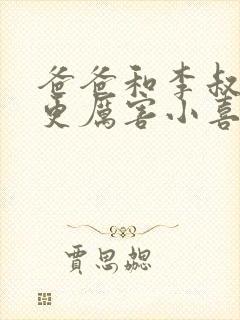 爸爸和李叔
更厲害小喜
賈思勰